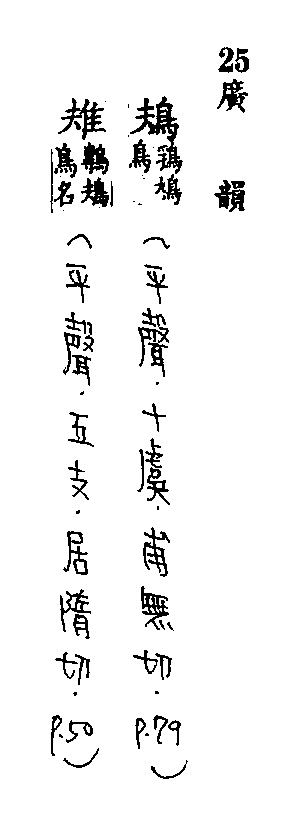 25 廣韻
鳺 鳥（平聲．十虞．甫無切．P.79）
鳺鳥名（平聲．五支．居隋切．P.50）